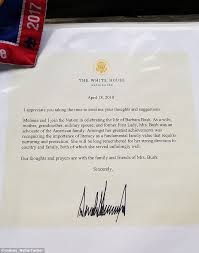 2017
THE WHITE HOUSE
WASHINGTON
April 18, 2018
I appreciate you taking the time to send me your thoughts and suggestions.
Melania and I join the Nation in celebrating the life of Barbara Bush. As a wife,
mother, grandmother, military spouse, and former First Lady, Mrs. Bush was an
advocate of the American family. Amongst her greatest achievements was
recognizing the importance of literacy as a fundamental family value that requires
nurturing and protection. She will be long remembered for her strong devotion to
country and family, both of which she served unfailingly well.
Our thoughts and prayers are with the family and friends of Mrs. Bush.
Sincerely,